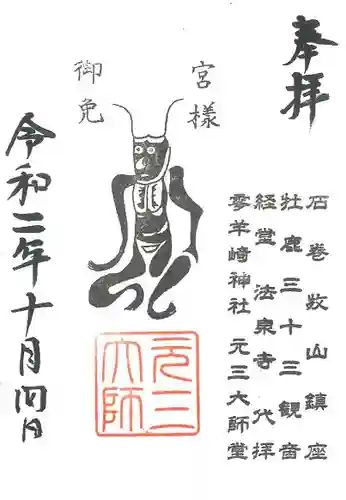 奉拝
石巻牧山鎮座
牡鹿三十三観音
経堂法泉寺代拝
零羊崎神社元三大師堂
宮様
御免
元三
大師
令和二年十月四日